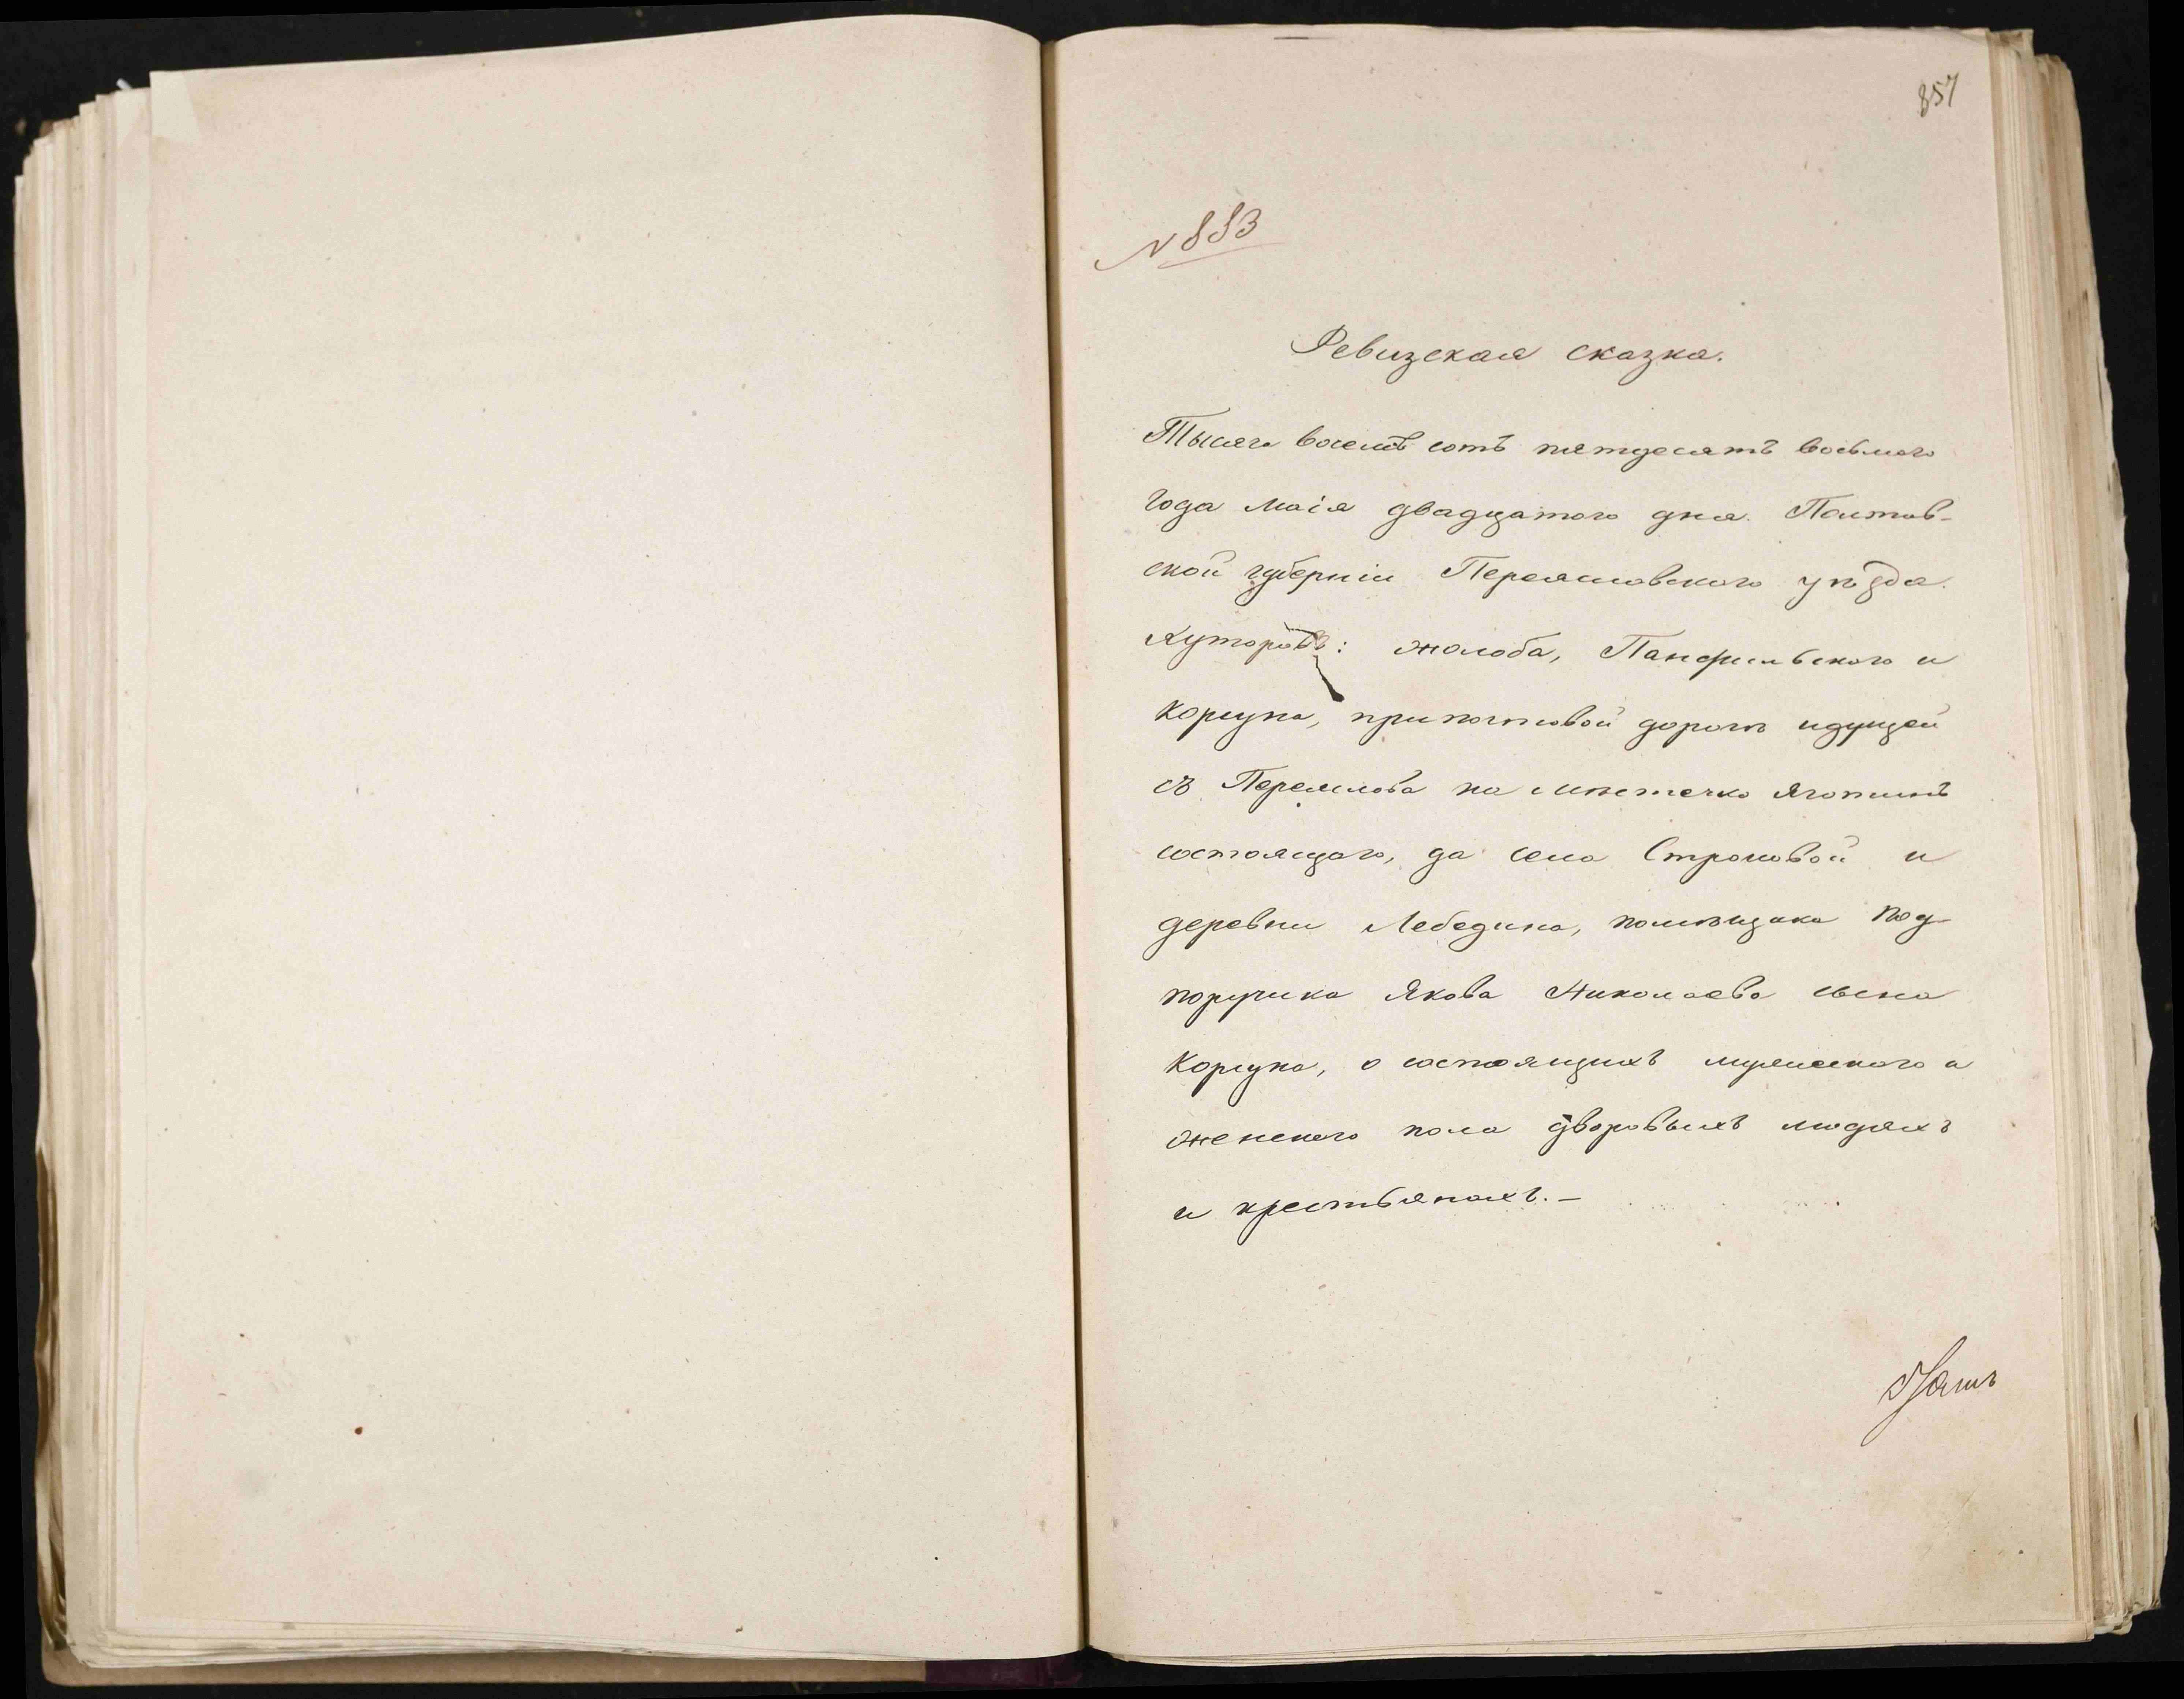 857
№ 883
Ревизская сказка.
Тысяча восемь сотъ пятдесятъ восьмого
года маія двадцатого дня. Полтав-
ской губерніи Переяславского уѣзда.
Хуторовъ: Жолоба, Панфильского и
Корсуна, при почтовой дорогѣ идущей
съ Переяслова на мѣстечко Яготинъ
состоящаго, да села Строковой и
деревни Лебедина, помѣщика под-
поручика Якова Николаева сына
Корсуна, о состоящихъ мужеского и
женского пола дворовыхъ людяхъ
и крестьянахъ.—